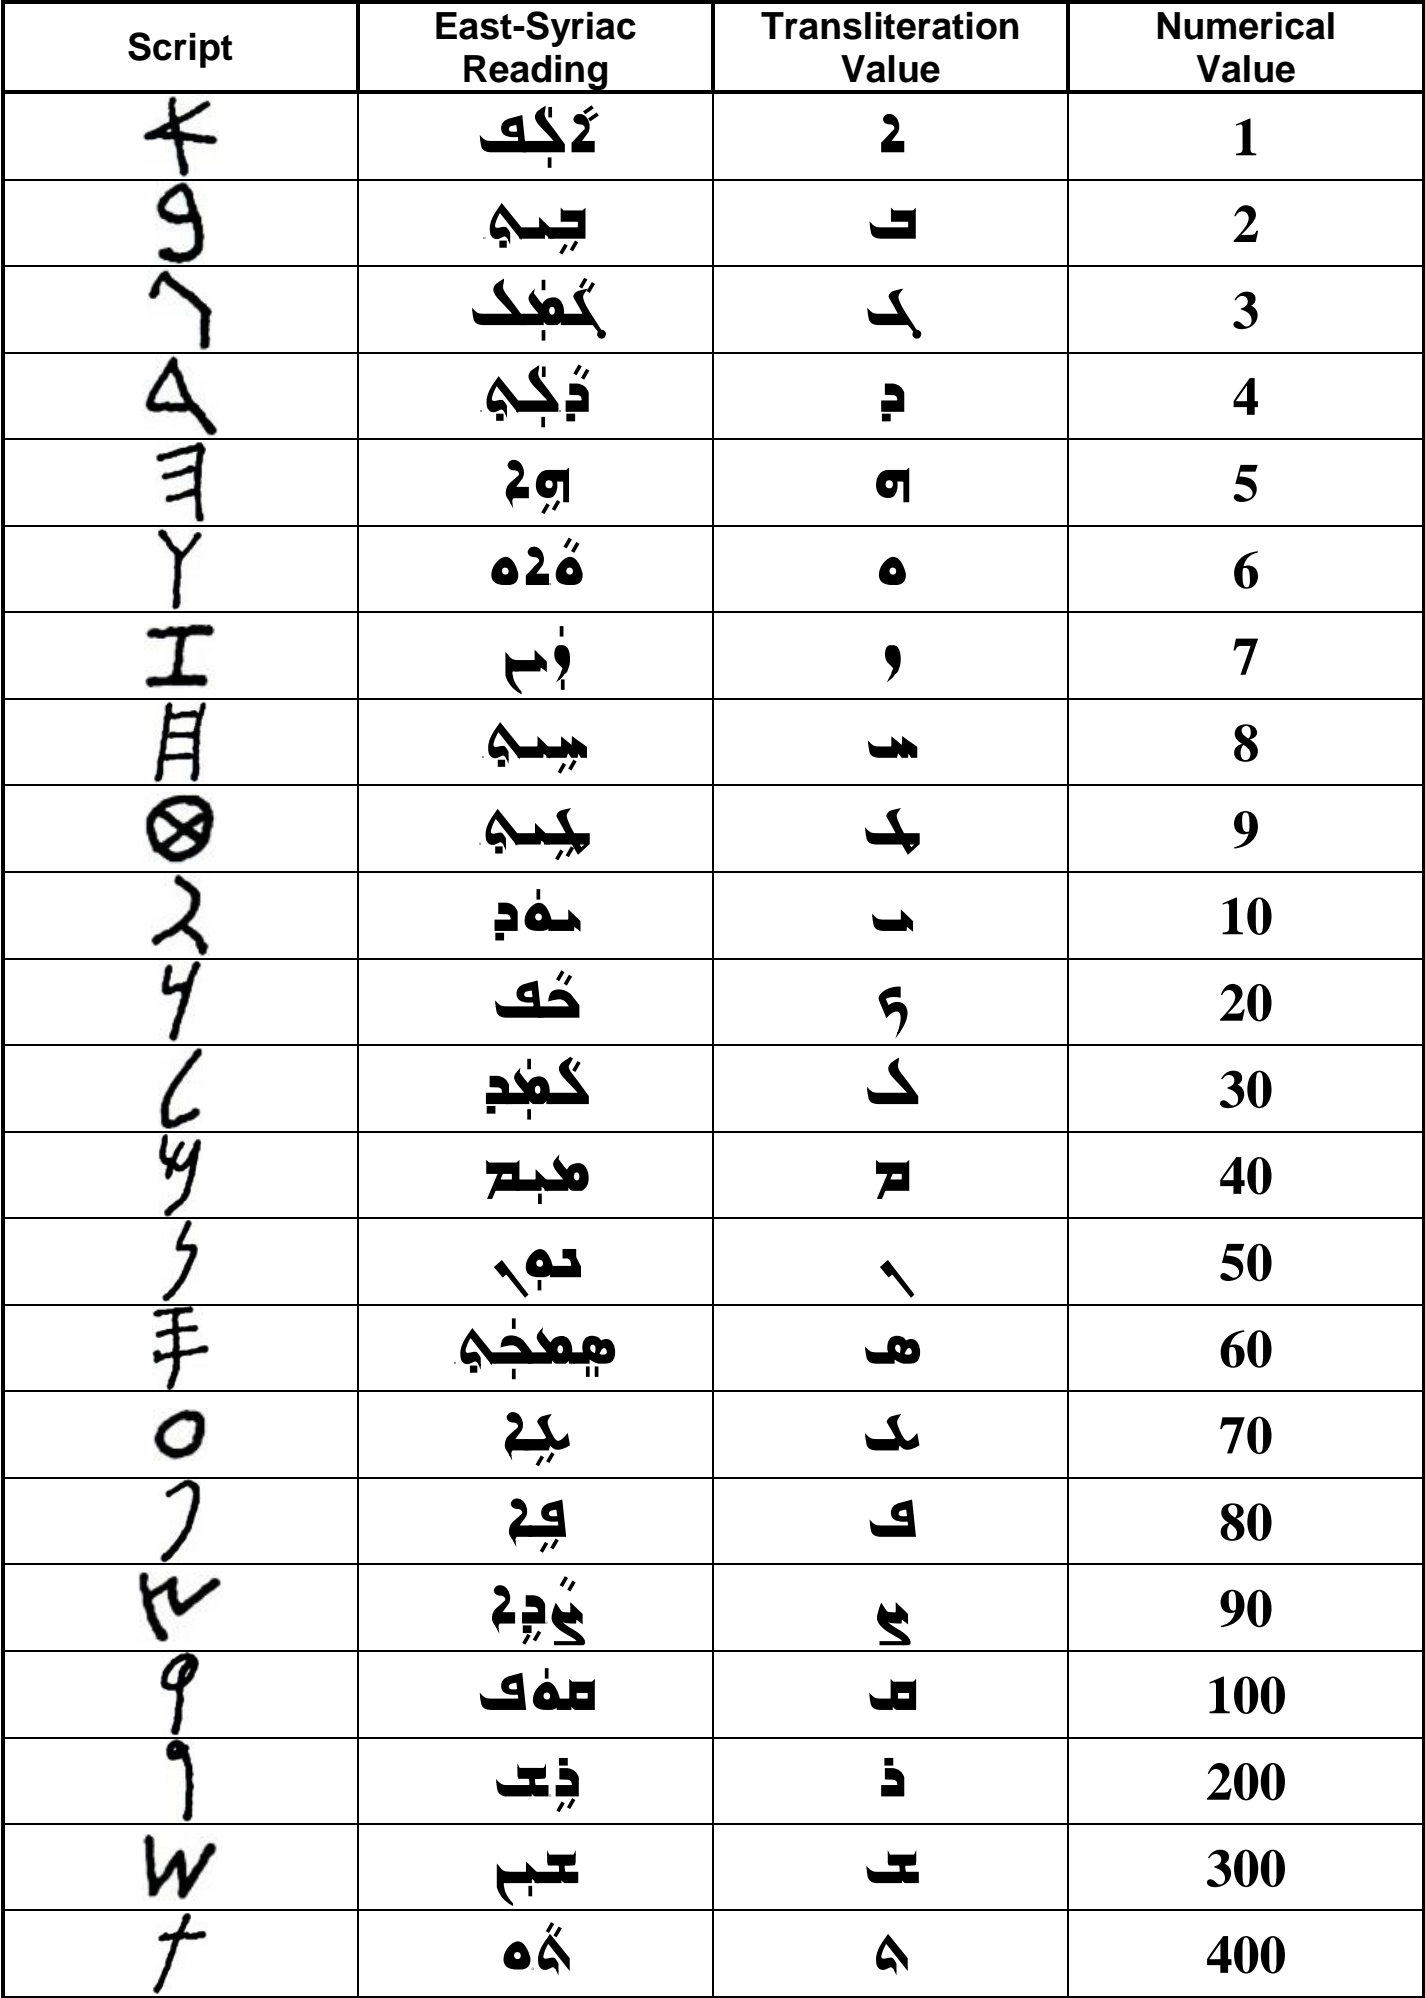 Script East-Syriac Reading Transliteration Value Numerical Value
𐤀 ܐܵܠܲܦ ܐ 1
𐤁 ܒܹܝܬ݂ ܒ 2
𐤂 ܓܵܡܲܠ ܓ 3
𐤃 ܕܵܠܲܬ݂ ܕ 4
𐤄 ܗܹܐ ܗ 5
𐤅 ܘܵܐܘ ܘ 6
𐤆 ܙܲܝܢ ܙ 7
𐤇 ܚܹܝܬ݂ ܚ 8
𐤈 ܛܹܝܬ݂ ܛ 9
𐤉 ܝܘܿܕ ܝ 10
𐤊 ܟܵܦ ܟ 20
𐤋 ܠܵܡܲܕ ܠ 30
𐤌 ܡܝܼܡ ܡ 40
𐤍 ܢܘܼܢ ܢ 50
𐤎 ܣܸܡܟܲܬ݂ ܣ 60
𐤏 ܥܹܐ ܥ 70
𐤐 ܦܹܐ ܦ 80
𐤑 ܨܵܕܹܐ ܨ 90
𐤒 ܩܘܿܦ ܩ 100
𐤓 ܪܹܫ ܪ 200
𐤔 ܫܝܼܢ ܫ 300
𐤕 ܬܵܘ ܬ 400